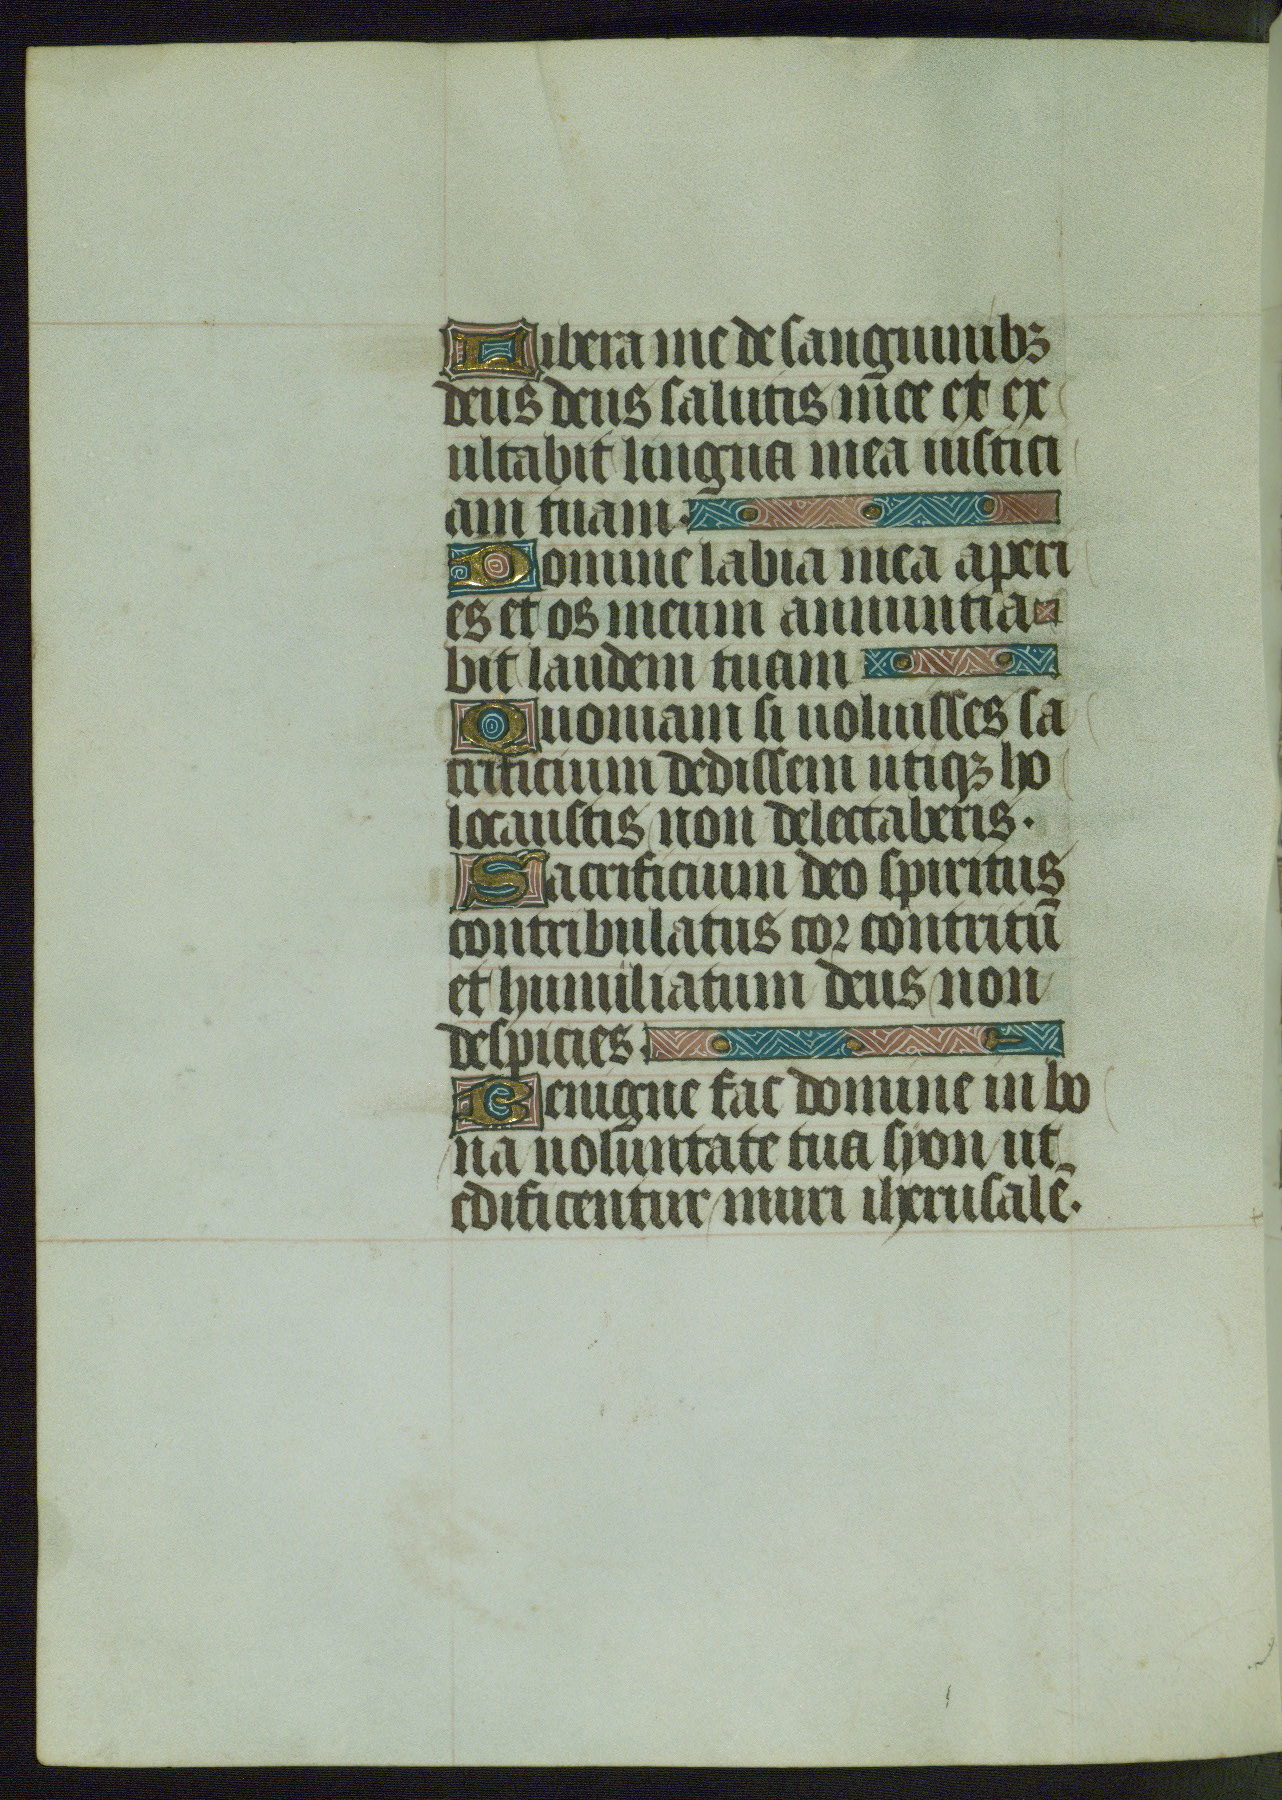 Libera me de sanguinibꝫ
deus deus salutis mee et ex
ultabit lingua mea iustici
am tuam.
Domine labia mea aperi
es et os meum annuntia
bit laudem tuam
Quoniam si uoluisses sa
crificium dedissem utiqꝫ ho
locaustis non delectaberis.
Sacrificium deo spiritus
contribulatus cor contritū
et humiliatum deus non
despicies.
Benigne fac domine in bo
na uoluntate tua syon ut
edificentur muri iherusalē.